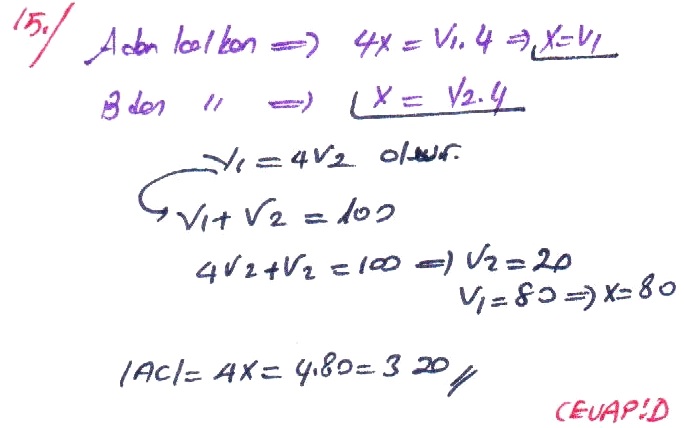 15./ A dan kalkan => 4x = V1.4 => x=V1
B den " => x = V2.4
V1 = 4V2 olur.
V1 + V2 = 100
4V2 + V2 = 100 => V2 = 20
V1 = 80 => x = 80
|AC| = 4x = 4.80 = 320 //
CEVAP:D